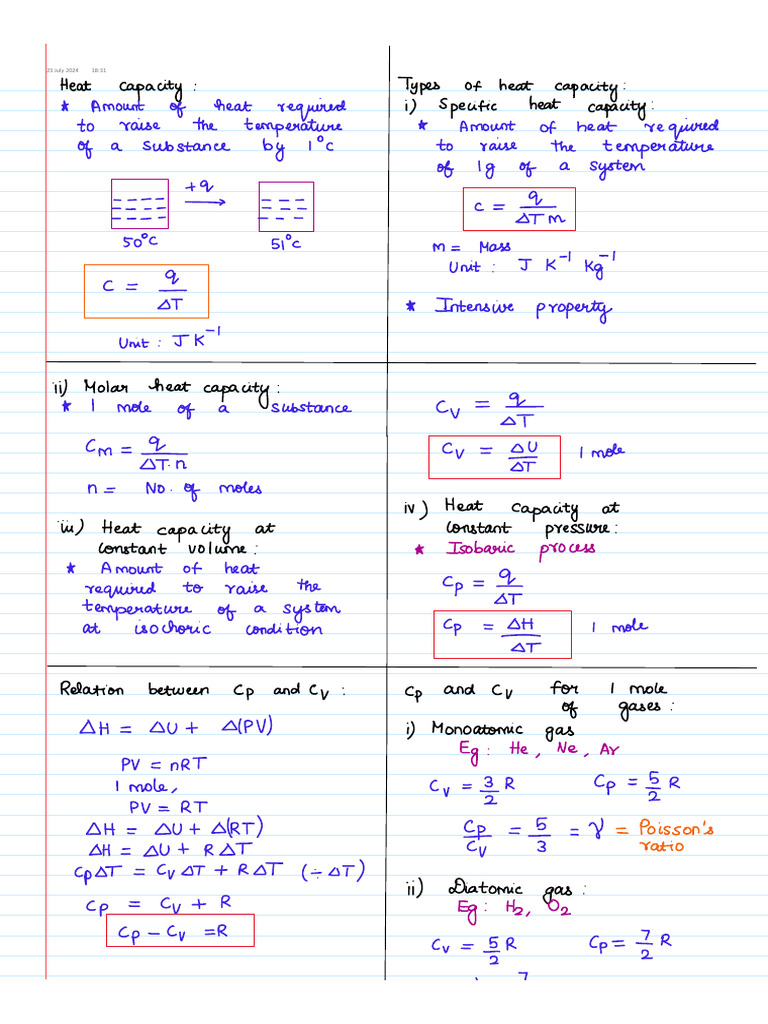 23 July 2024 18:31
Heat capacity :
* Amount of heat required
to raise the temperature
of a substance by 1°C
+q
50°C
51°C
C = q/ΔT
Unit : J K⁻¹
Types of heat capacity :
i) Specific heat capacity :
* Amount of heat required
to raise the temperature
of 1g of a system
c = q/ΔT m
m = Mass
Unit : J K⁻¹ Kg⁻¹
* Intensive property
ii) Molar heat capacity :
* 1 mole of a substance
Cm = q/ΔT.n
n = No. of moles
iii) Heat capacity at
constant volume :
* Amount of heat
required to raise the
temperature of a system
at isochoric condition
Cv = q/ΔT
Cv = ΔU/ΔT 1 mole
iv) Heat capacity at
constant pressure :
* Isobaric process
Cp = q/ΔT
Cp = ΔH/ΔT 1 mole
Relation between Cp and Cv :
ΔH = ΔU + Δ(PV)
PV = nRT
1 mole,
PV = RT
ΔH = ΔU + Δ(RT)
ΔH = ΔU + RΔT
CpΔT = CvΔT + RΔT (÷ΔT)
Cp = Cv + R
Cp – Cv = R
Cp and Cv for 1 mole
of gases :
i) Monoatomic gas
Eg : He, Ne, Ar
Cv = 3/2 R Cp = 5/2 R
Cp/Cv = 5/3 = γ = Poisson's
ratio
ii) Diatomic gas :
Eg : H₂, O₂
Cv = 5/2 R Cp = 7/2 R